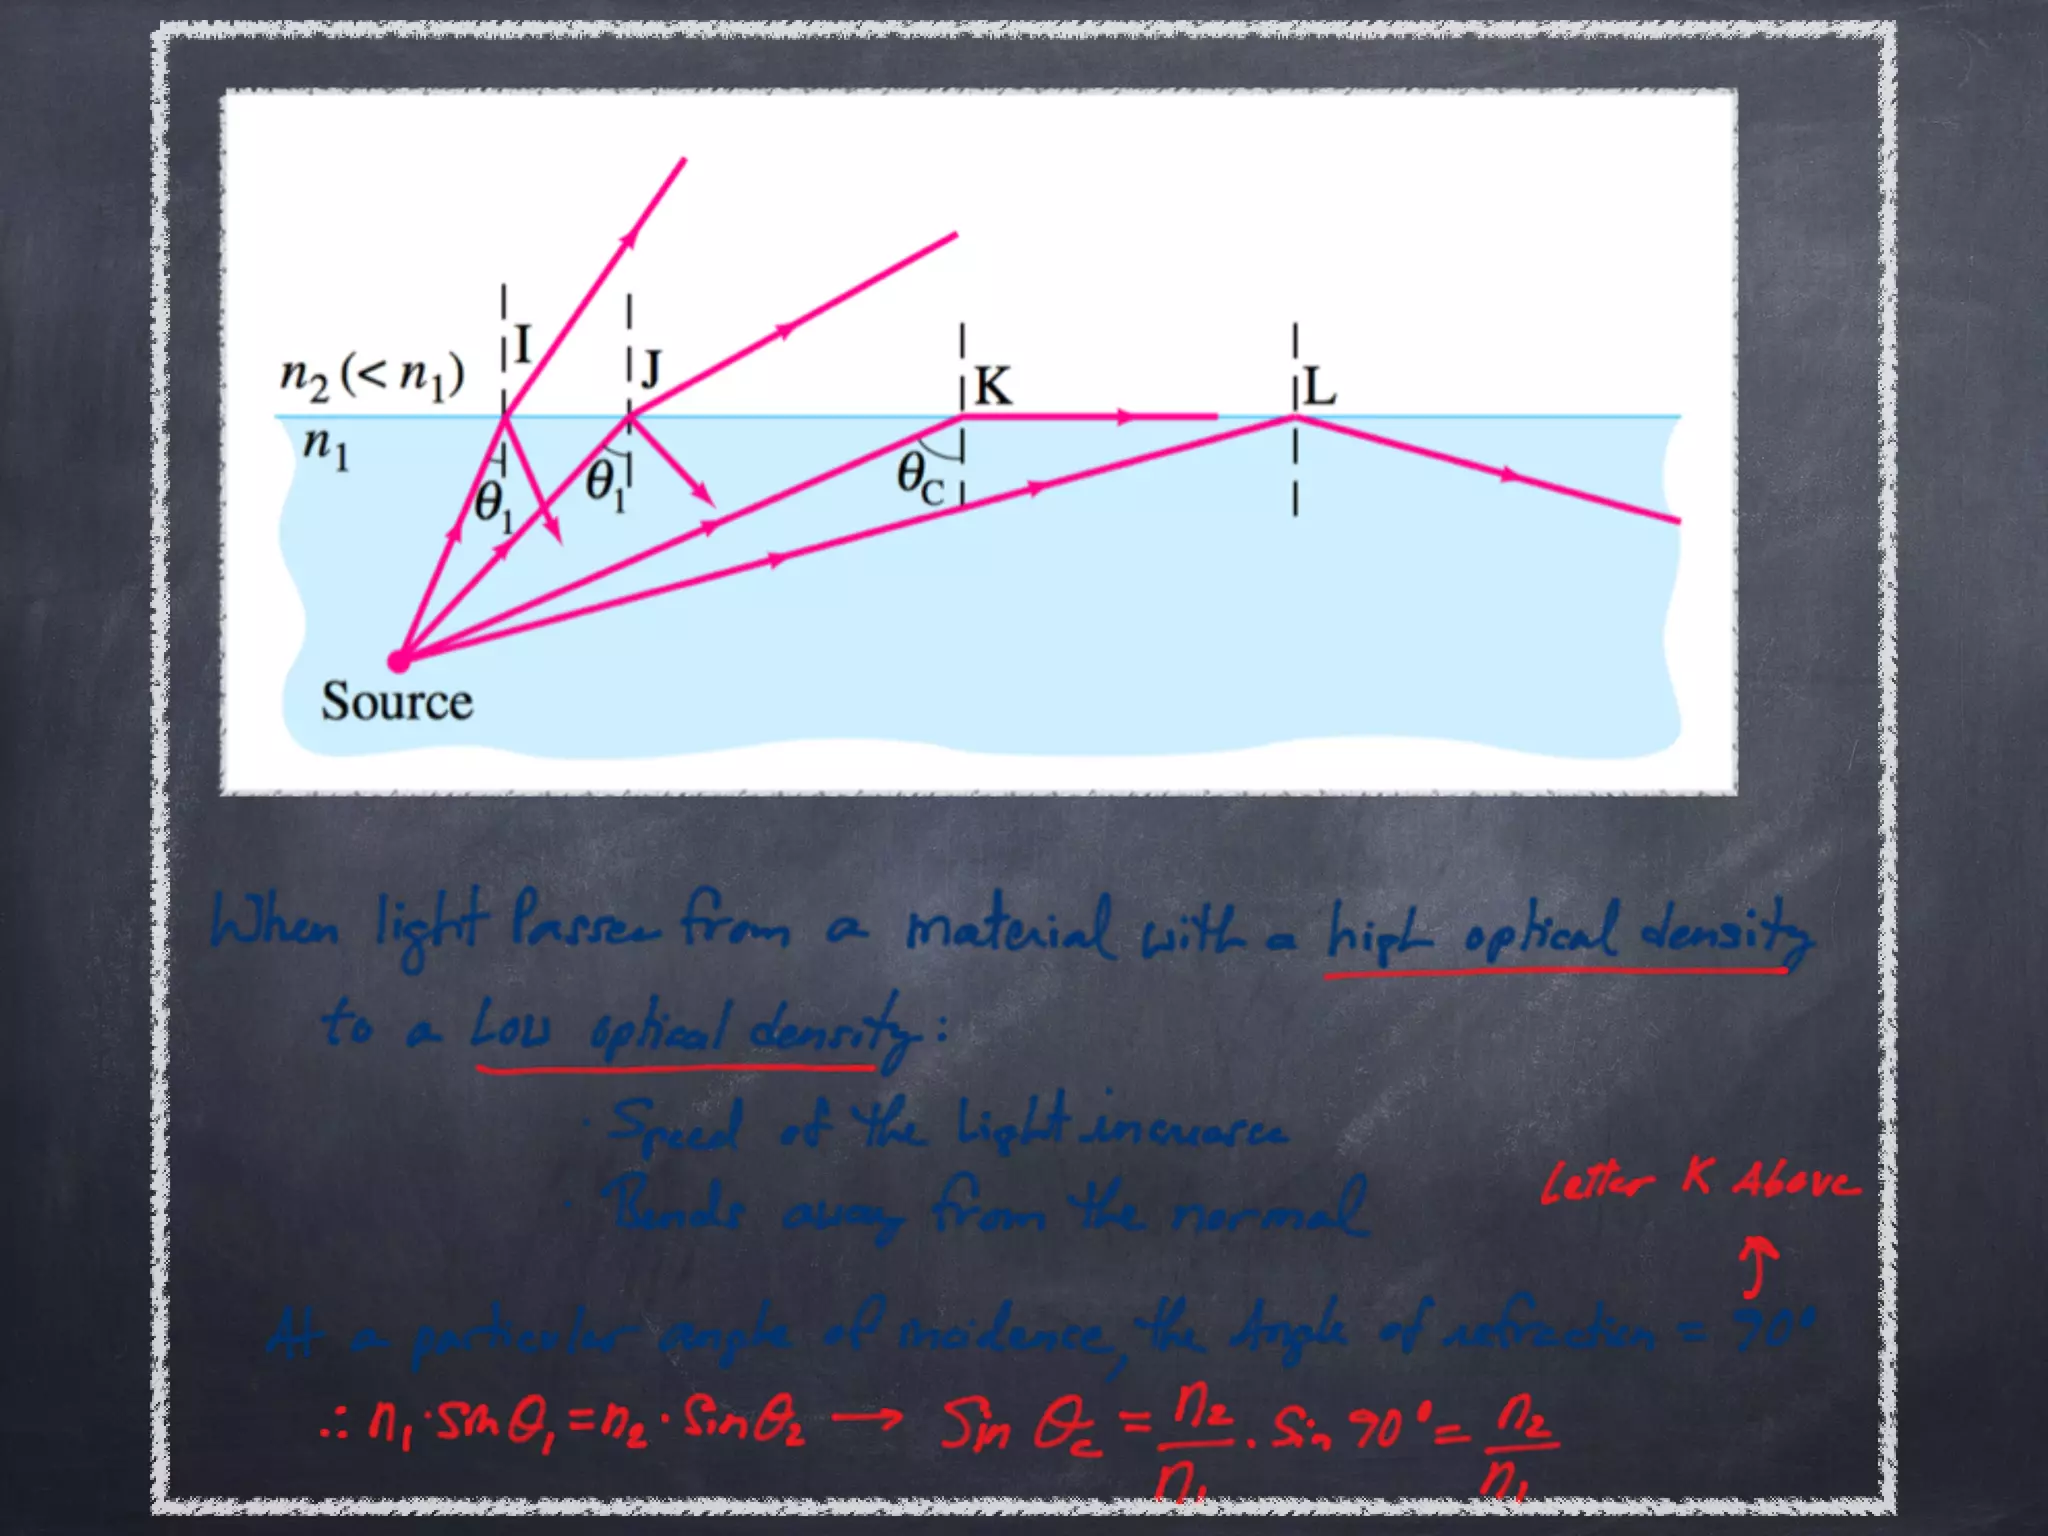 I
J
n₂ (< n₁)
K
L
n₁
θ₁
θ₁
θC
Source
When light Passes from a material with a high optical density
to a Low optical density:
· Speed of the Light increases
· Bends away from the normal
Letter K Above
↑
At a particular angle of incidence, the Angle of refraction = 90°
∴ n₁·sinθ₁ = n₂·sinθ₂ → Sin θc = n₂/n₁ · Sin 90° = n₂/n₁